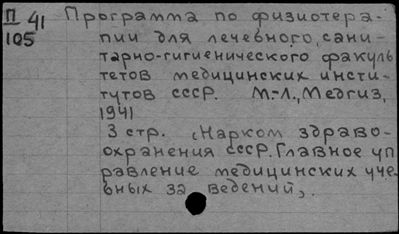 П 41 Программа по физиотера-
105 пии для лечебного, сани-
тарно-гигиенического факуль
тетов медицинских инсти-
тутов СССР. М.-Л., Медгиз,
1941
3 стр. (Нарком здраво-
охранения СССР. Главное уп
равление медицинских уче-
бных за ведений),.